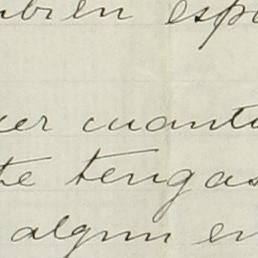 mbien espa
er cuanto
te tengas
algun en